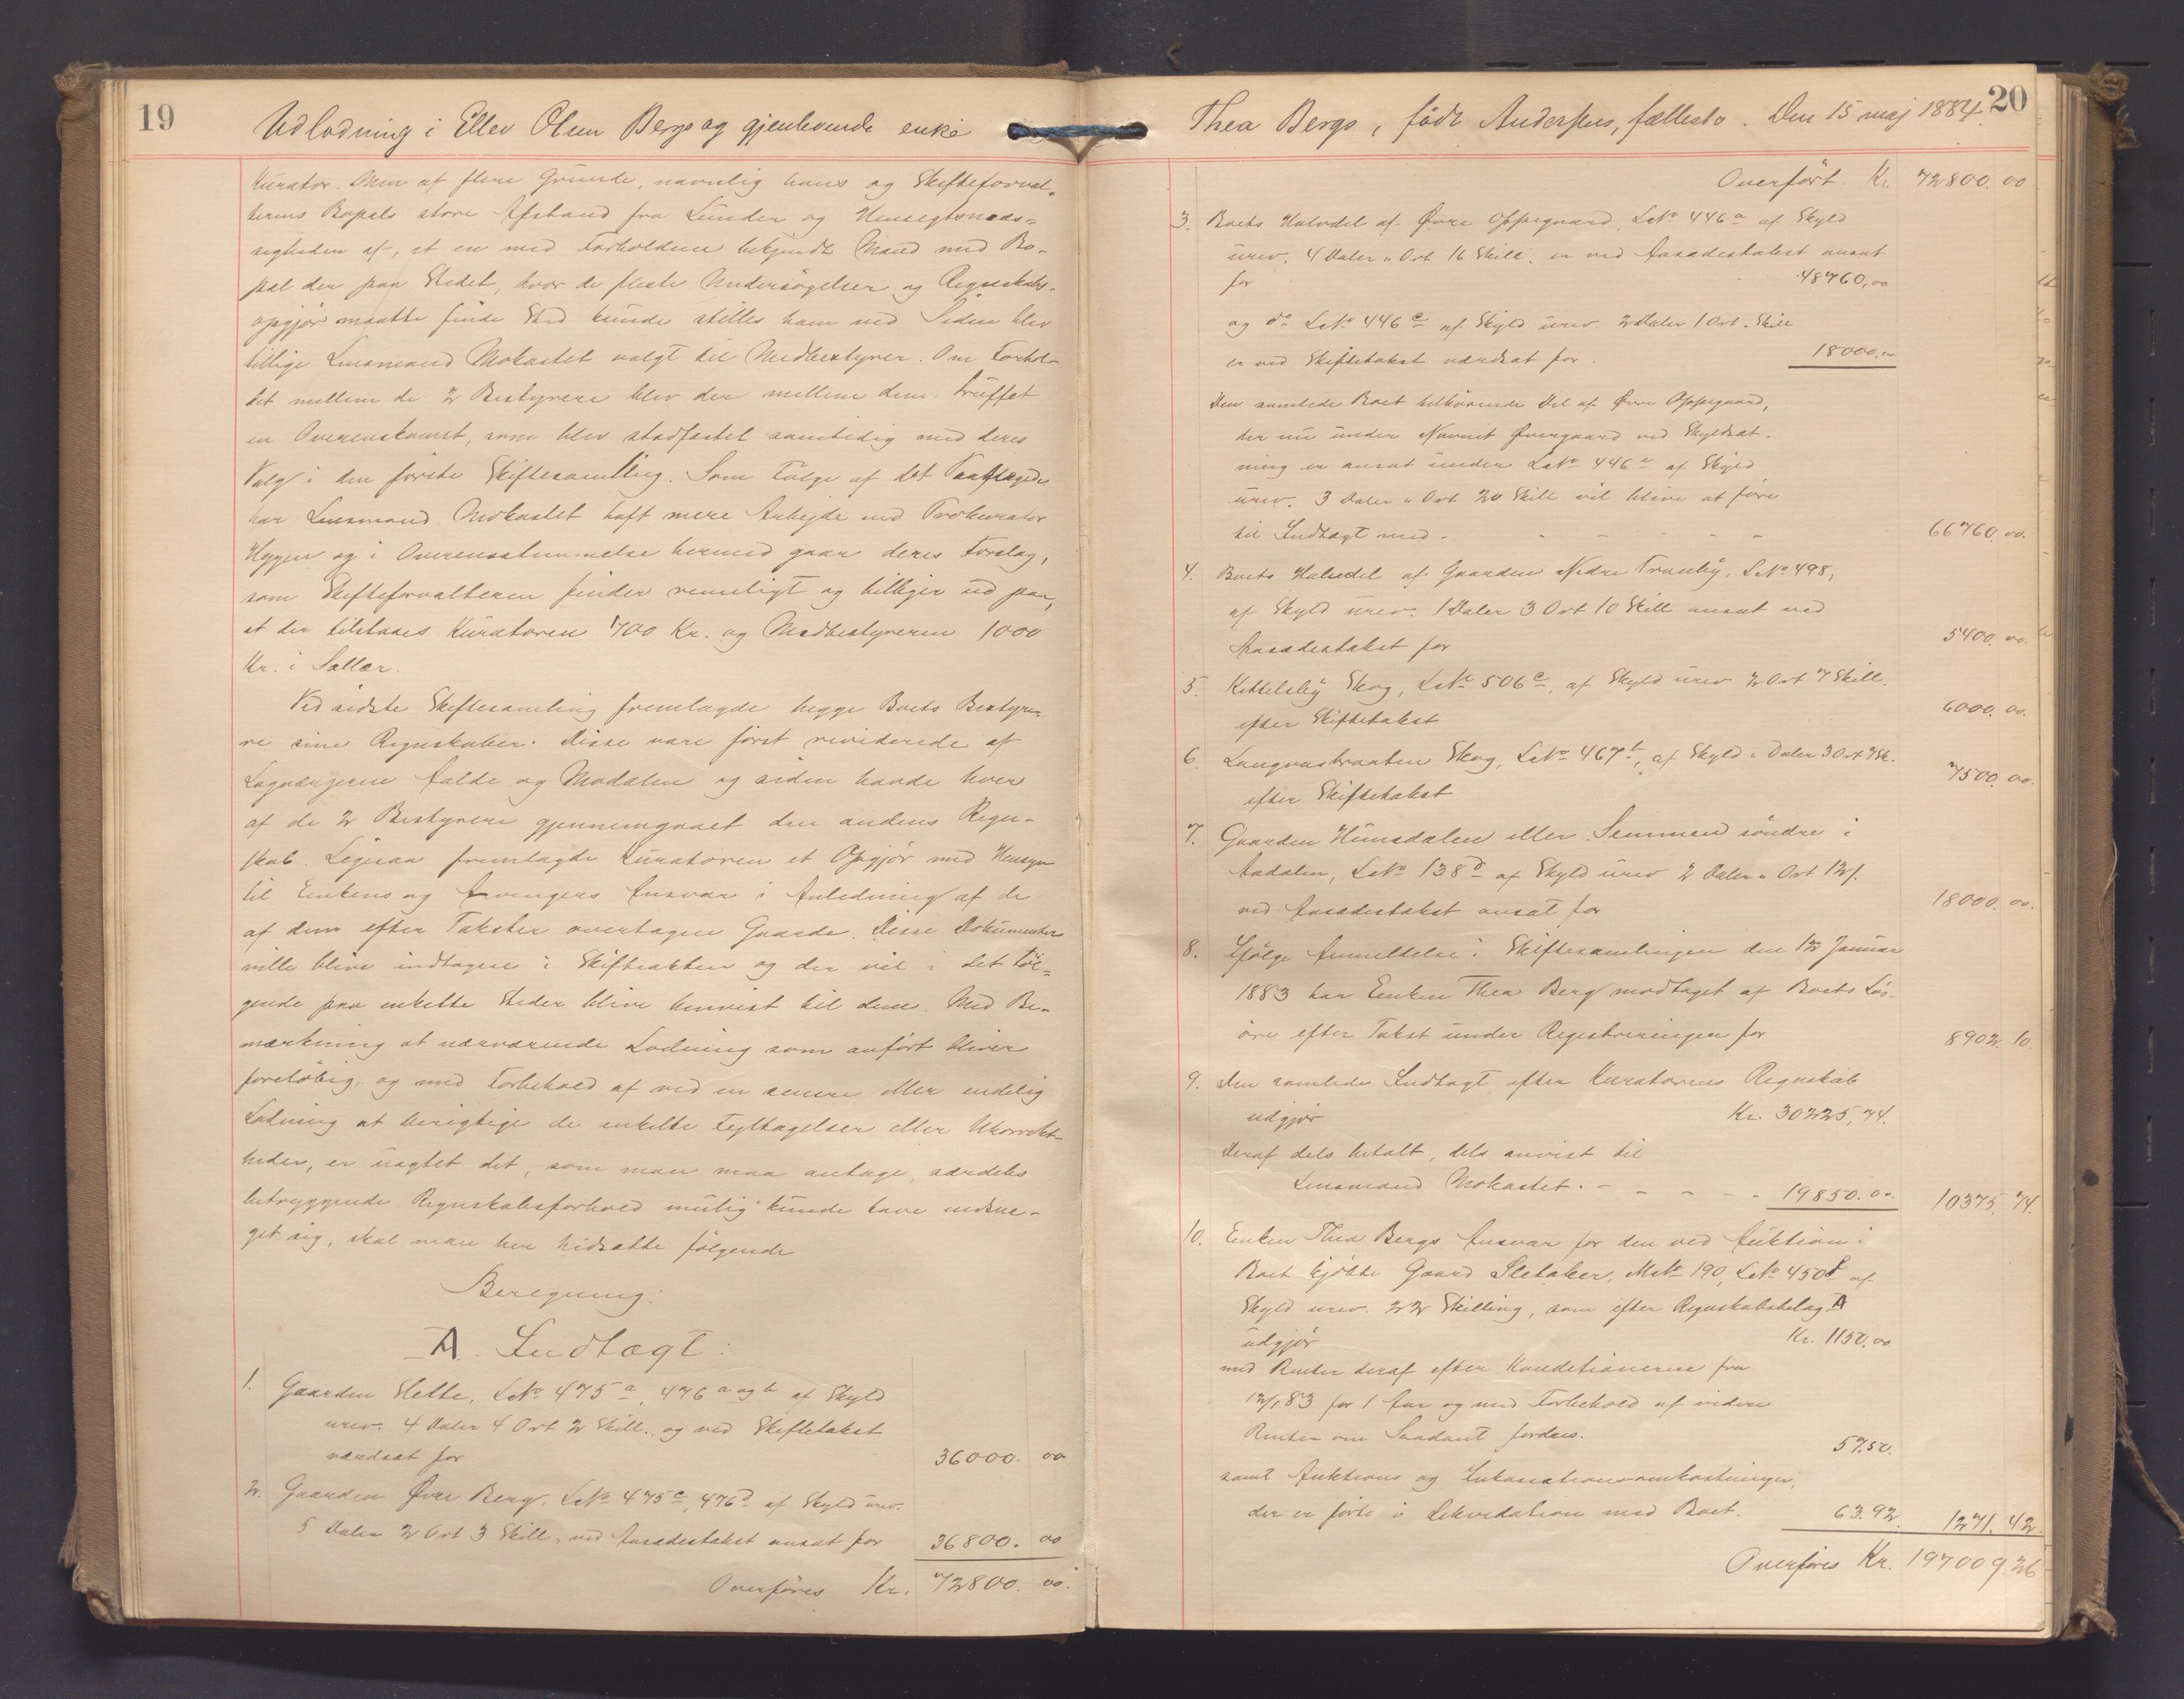 19
Udlodning i Ellev Olsen Bergs og gjenlevende enke
Kurator. Men af flere Grunde, navnlig hans og Skifteforval-
terens Bopæls store Afstand fra Lunder og Hensigtsmæs-
sigheden af, at en med Forholdene bekjendt Mand med Bo-
pæl der paa Stedet, hvor de fleste Undersøgelser og Regnskabs-
opgjør maatte finde Sted kunde stilles ham ved Siden blev
tillige Lensmand Mokastet valgt til Medbestyrer. Om Forhol-
det mellem de 2 Bestyrere blev der mellem dem truffet
en Overenskomst, som blev stadfæstet samtidig med deres
Valg i den første Skiftesamling. Som Følge af det Paaklagede
har Lensmand Mokastet haft mere Arbejde end Prokurator
Heyger og i Overensstemmelse hermed gaar deres Forslag,
som Skifteforvalteren finder rimeligt og billiger ud paa,
at der tilstaaes Kuratoren 700 Kr. og Medbestyreren 1000
Kr. i Sallær.
Ved sidste Skiftesamling fremlagde begge Boets Bestyre-
re sine Regnskaber. Disse vare først reviderede af
Lagværgerne Aalde og Modalen og siden havde hver
af de 2 Bestyrere gjennemgaaet den andens Regn-
skab. Ligesaa fremlagde Kuratoren et Opgjør med Hensyn
til Enkens og Arvingers Ansvar i Anledning af de
af dem efter Takster overtagne Gaarde. Disse Dokumenter
ville blive indtagne i Skifteakten og der vil i det Føl-
gende paa enkelte Steder blive henvist til dem. Med Be-
mærkning at nærværende Lodning som anført bliver
foreløbig, og med Forbehold af ved en senere eller endelig
Lodning at berigtige de enkelte Fejltagelser eller Ukorrekt-
heder, er uagtet det, som man maa antage, særdeles
betryggende Regnskabsforhold mulig kunde have indsne-
get sig, skal man her hidsætte følgende
Beregning:
A. Indtægt:
1. Gaarden Helte, LNo 475 a, 476 a og b af Skyld
urev. 4 Daler 4 Ort 2 Skill. og ved Skiftetakst
værdsat for 36000. 00
2. Gaarden Øvre Berg, LNo 475 c, 476 d af Skyld urev.
5 Daler 2 Ort 3 Skill. ved Aasædestakst ansat for 36800. 00
Overføres Kr. 72800. 00.
20
Thea Bergs, født Andersens, fællesbo. Den 15 maj 1884.
Overført. Kr. 72800. 00
3. Boets Halvdel af Øvre Oppegaard, LNo 446 a af Skyld
urev. 4 Daler " Ort 16 Skill. er ved Aasædestakst ansat
for 48760,00
og do LNo 446 c af Skyld urev. 2 Daler 1 Ort " Skill
er ved Skiftetakst værdsat for. 18000.00
Den samlede Boet tilhørende Del af Øvre Oppegaard,
der nu under Navnet Øvergaard ved Skyldsæt-
ning er ansat under LNo 446 a af Skyld
urev. 3 Daler " Ort 20 Skill vil blive at føre
til Indtægt med - - - - - 66760. 00.
4. Boets Halvdel af Gaarden Nedre Tranby, LNo 498,
af Skyld urev. 1 Daler 3 Ort 10 Skill ansat ved
Aasædestakst for 5400. 00.
5. Kittelsby Skog, LNo 506 c, af Skyld urev 2 Ort 7 Skill.
efter Skiftetakst 6000. 00.
6. Langvasbraaten Skog, LNo 467 b, af Skyld " Daler 3 Ort 7 Sk.
efter Skiftetakst 7500. 00.
7. Gaarden Hunsdalen eller Semmen søndre i
Aadalen, LNo 138 d af Skyld urev 2 Daler " Ort 12 s.
ved Aasædestakst ansat for 18000. 00.
8. Ifølge Anmeldelse i Skiftesamlingen den 12 Januar
1883 har Enken Thea Berg modtaget af Boets Løs-
øre efter Takst under Registreringen for 8902. 10.
9. Den samlede Indtægt efter Kuratorens Regnskab
udgjør Kr. 30225,74.
Deraf dels betalt, dels anvist til
Lensmand Mokastet. - - - - 19850.00. 10375. 74.
10. Enken Thea Bergs Ansvar for den ved Auktion i
Boet kjøbte Gaard Sletaker, MNo 190, LNo 450 f af
Skyld urev. 22 Skilling, som efter Regnskabsbilag A
udgjør Kr. 1150.00
med Renter deraf efter Konditionerne fra
12/1 83 for 1 Aar og med Forbehold af videre
Renter om Saadant fordres. 57.50.
samt Auktions og Inkassationsomkostninger,
der er førte i Likvidation med Boet. 63.92. 1271. 42.
Overføres Kr. 197009.26